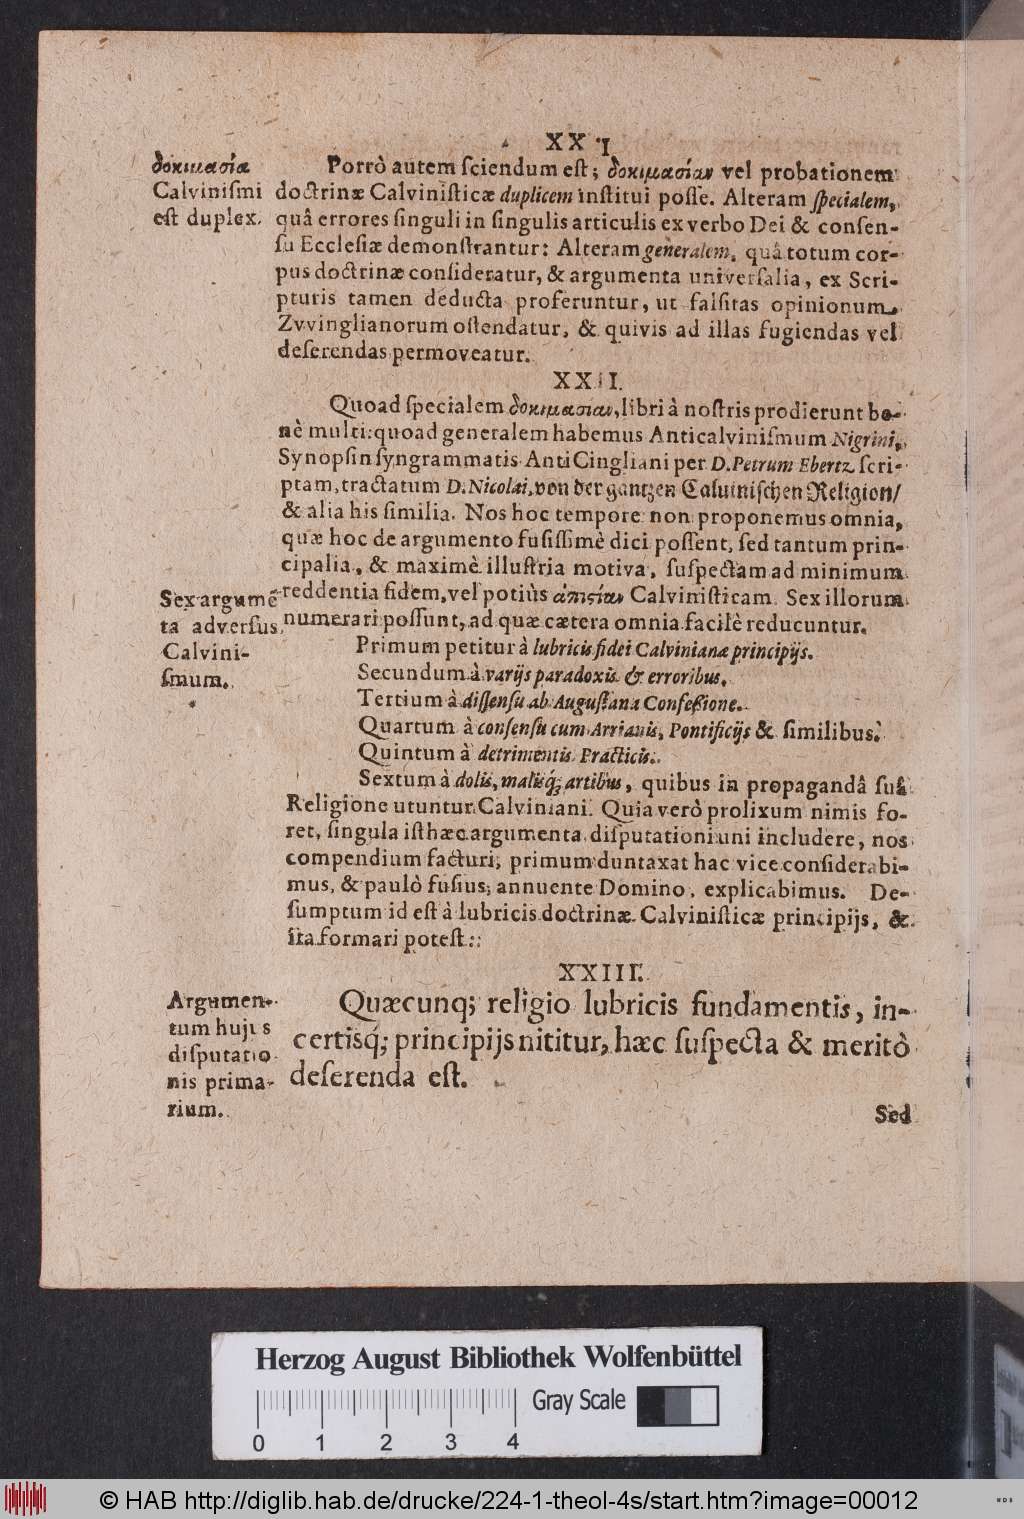 XXI
δοκιμασία
Calviniſmi
eſt duplex.
Porrò autem ſciendum eſt; δοκιμασίαν vel probationem
doctrinæ Calviniſticæ duplicem inſtitui poſſe. Alteram ſpecialem,
quâ errores ſinguli in ſingulis articulis ex verbo Dei & conſen-
ſu Eccleſiæ demonſtrantur: Alteram generalem, quâ totum cor-
pus doctrinæ conſideratur, & argumenta univerſalia, ex Scri-
pturis tamen deducta proferuntur, ut falſitas opinionum
Zvvinglianorum oſtendatur, & quivis ad illas fugiendas vel
deſerendas permoveatur.
XXII.
Quoad ſpecialem δοκιμασίαν, libri à noſtris prodierunt be-
nè multi: quoad generalem habemus Anticalviniſmum Nigrini,
Synopſin ſyngrammatis AntiCingliani per D. Petrum Ebertz ſcri-
ptam, tractatum D. Nicolai, von der gantzen Caluiniſchen Religion/
& alia his ſimilia. Nos hoc tempore non proponemus omnia,
quæ hoc de argumento fuſiſſimè dici poſſent, ſed tantum prin-
cipalia, & maximè illuſtria motiva, ſuſpectam ad minimum
reddentia fidem, vel potiùs ἀπιςίαν Calviniſticam. Sex illorum
numerari poſſunt, ad quæ cætera omnia facilè reducuntur.
Sex argumē
ta adverſus
Calvini-
ſmum.
Primum petitur à lubricis fidei Calvinianæ principijs.
Secundum à varijs paradoxis & erroribus.
Tertium à diſſenſu ab Auguſtana Confeßione.
Quartum à conſenſu cum Arrianis, Pontificijs & ſimilibus.
Quintum à detrimentis Practicis.
Sextum à dolis, malisq́; artibus, quibus in propagandâ ſuâ
Religione utuntur Calviniani. Quia verò prolixum nimis fo-
ret, ſingula iſthæc argumenta diſputationi uni includere, nos
compendium facturi, primum duntaxat hac vice conſiderabi-
mus, & paulò fuſius, annuente Domino, explicabimus. De-
ſumptum id eſt à lubricis doctrinæ Calviniſticæ principijs, &
ita formari poteſt:
XXIII.
Argumen-
tum hujus
diſputatio
nis prima-
rium.
Quæcunq; religio lubricis fundamentis, in-
certisq́; principijs nititur, hæc ſuſpecta & meritò
deſerenda eſt.
Sed
Herzog August Bibliothek Wolfenbüttel
Gray Scale
0 1 2 3 4
© HAB http://diglib.hab.de/drucke/224-1-theol-4s/start.htm?image=00012